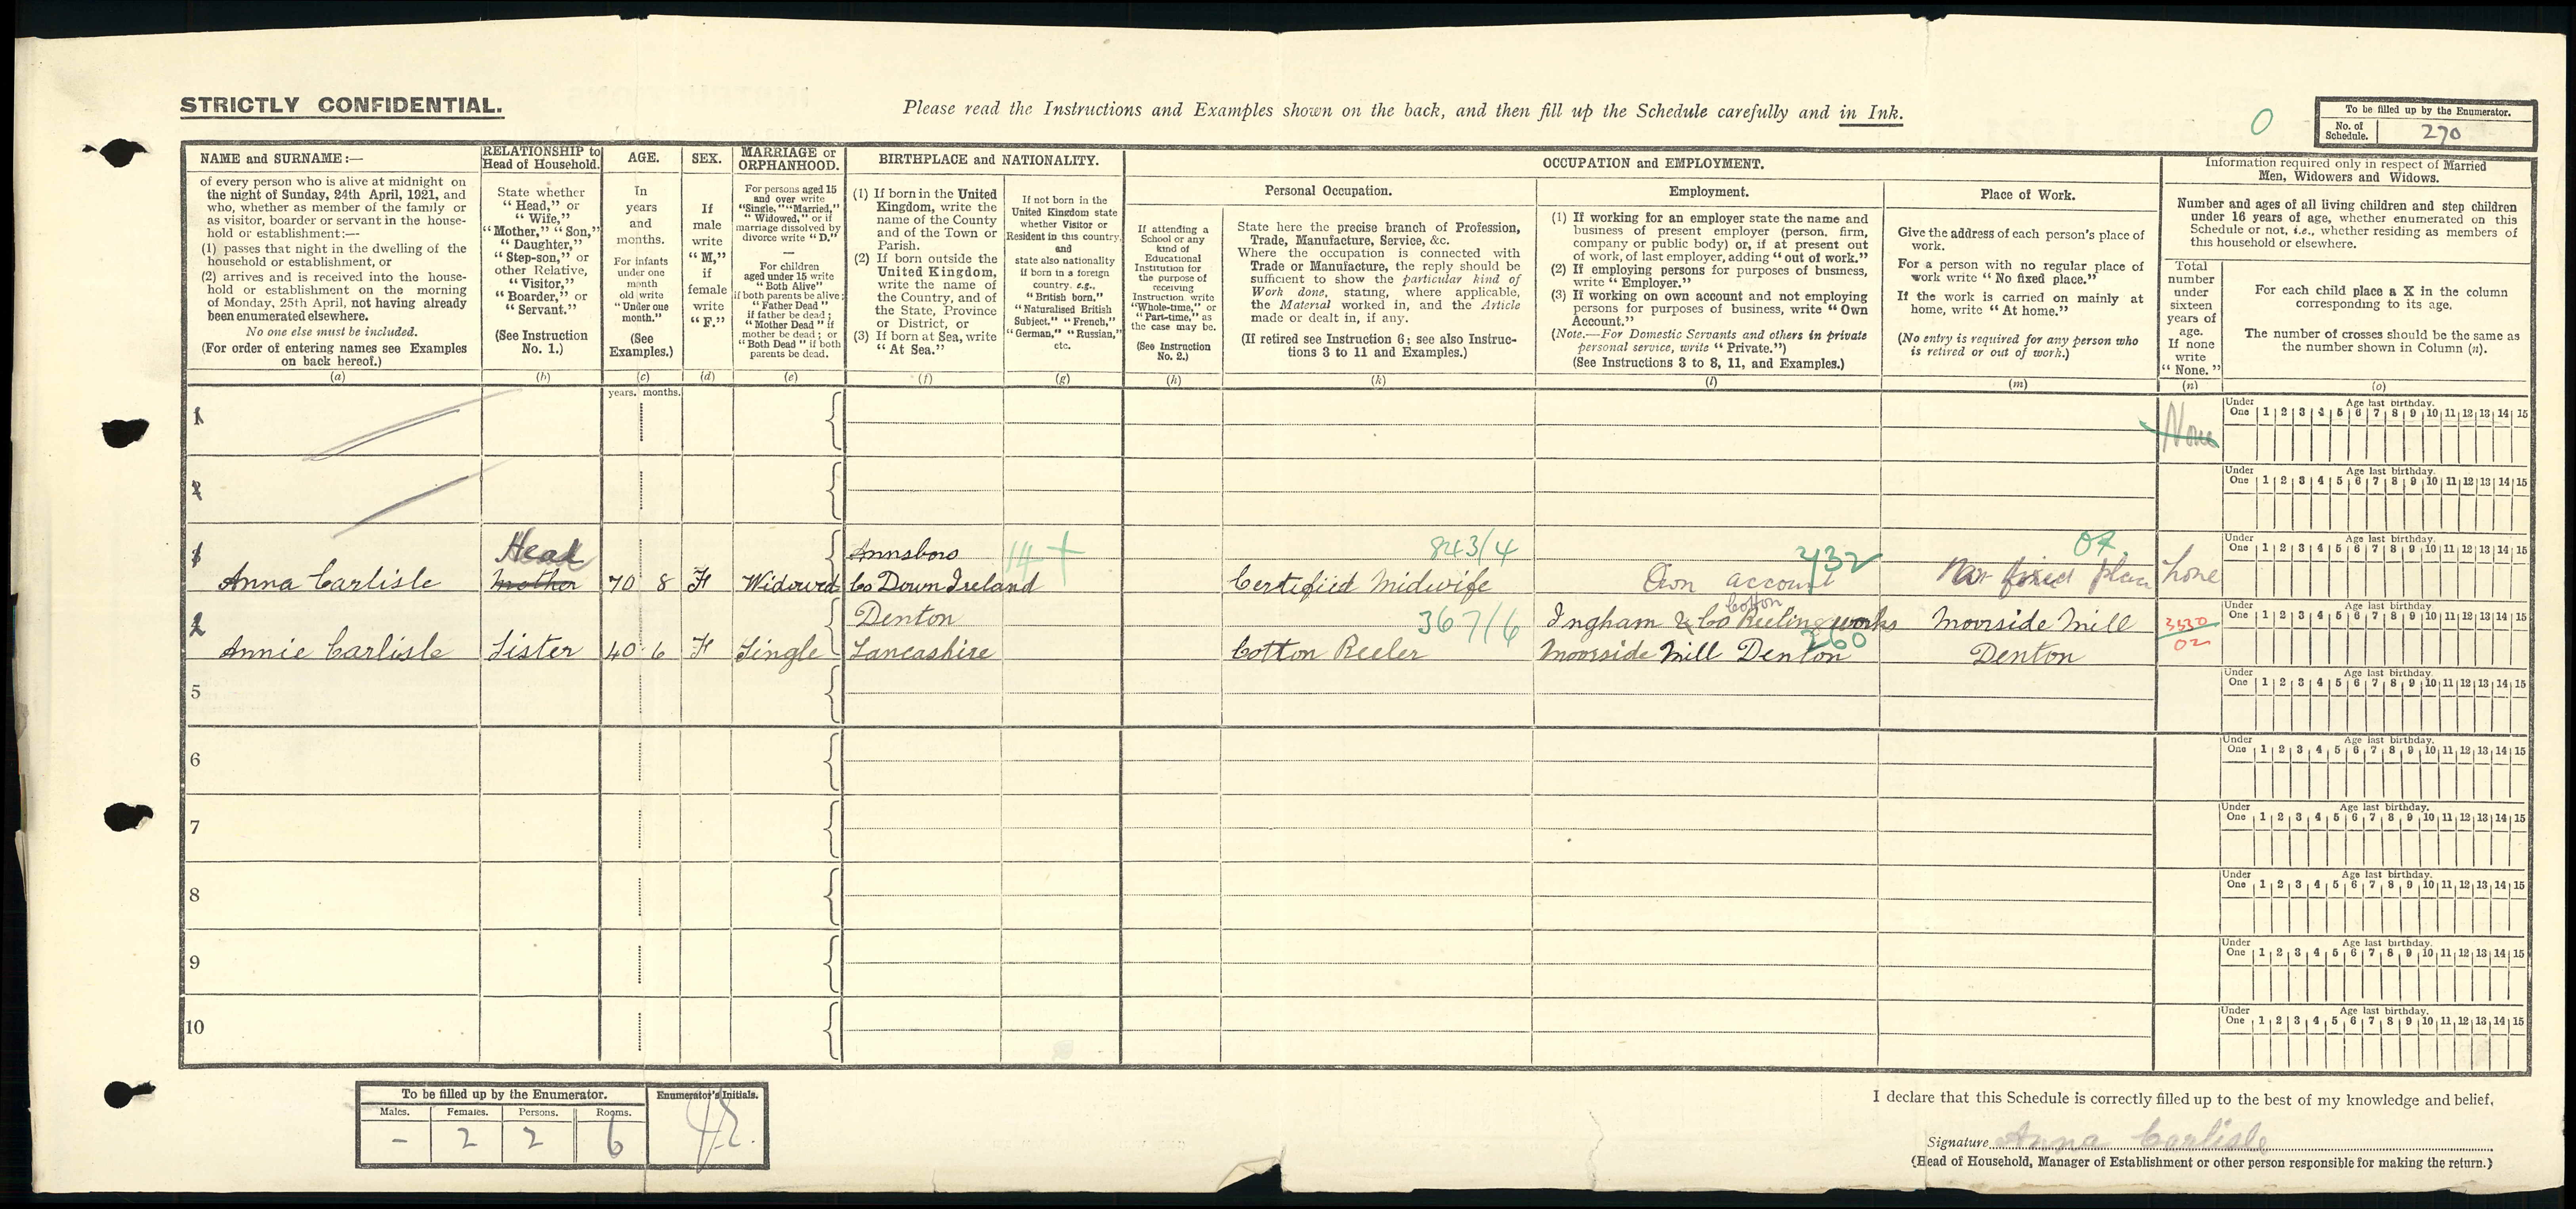 STRICTLY CONFIDENTIAL.
Please read the Instructions and Examples shown on the back, and then fill up the Schedule carefully and in Ink.
0
To be filled up by the Enumerator.
No. of Schedule. 270
NAME and SURNAME:—
of every person who is alive at midnight on
the night of Sunday, 24th April, 1921, and
who, whether as member of the family or
as visitor, boarder or servant in the house-
hold or establishment:—
(1) passes that night in the dwelling of the
household or establishment, or
(2) arrives and is received into the house-
hold or establishment on the morning
of Monday, 25th April, not having already
been enumerated elsewhere.
No one else must be included.
(For order of entering names see Examples
on back hereof.)
(a)
RELATIONSHIP to
Head of Household.
State whether
"Head," or
"Wife,"
"Mother," "Son,"
"Daughter,"
"Step-son," or
other Relative,
"Visitor,"
"Boarder," or
"Servant."
(See Instruction
No. 1.)
(b)
AGE.
In
years
and
months.
For infants
under one
month
old write
"Under one
month."
(See
Examples.)
(c)
years. months.
SEX.
If
male
write
"M,"
if
female
write
"F."
(d)
MARRIAGE or
ORPHANHOOD.
For persons aged 15
and over write
"Single," "Married,"
"Widowed," or if
marriage dissolved by
divorce write "D."
—
For children
aged under 15 write
"Both Alive"
if both parents be alive;
"Father Dead"
if father be dead;
"Mother Dead" if
mother be dead; or
"Both Dead" if both
parents be dead.
(e)
BIRTHPLACE and NATIONALITY.
(1) If born in the United
Kingdom, write the
name of the County
and of the Town or
Parish.
(2) If born outside the
United Kingdom,
write the name of
the Country, and of
the State, Province
or District, or
(3) If born at Sea, write
"At Sea."
(f)
If not born in the
United Kingdom state
whether Visitor or
Resident in this country,
and
state also nationality
if born in a foreign
country. e.g.,
"British born,"
"Naturalised British
Subject," "French,"
"German," "Russian,"
etc.
(g)
OCCUPATION and EMPLOYMENT.
If attending a
School or any
kind of
Educational
Institution for
the purpose of
receiving
Instruction write
"Whole-time," or
"Part-time," as
the case may be.
(See Instruction
No. 2.)
(h)
Personal Occupation.
State here the precise branch of Profession,
Trade, Manufacture, Service, &c.
Where the occupation is connected with
Trade or Manufacture, the reply should be
sufficient to show the particular kind of
Work done, stating, where applicable,
the Material worked in, and the Article
made or dealt in, if any.
(If retired see Instruction 6; see also Instruc-
tions 3 to 11 and Examples.)
(k)
Employment.
(1) If working for an employer state the name and
business of present employer (person, firm,
company or public body) or, if at present out
of work, of last employer, adding "out of work."
(2) If employing persons for purposes of business,
write "Employer."
(3) If working on own account and not employing
persons for purposes of business, write "Own
Account."
(Note.—For Domestic Servants and others in private
personal service, write "Private.")
(See Instructions 3 to 8, 11, and Examples.)
(l)
Place of Work.
Give the address of each person's place of
work.
For a person with no regular place of
work write "No fixed place."
If the work is carried on mainly at
home, write "At home."
(No entry is required for any person who
is retired or out of work.)
(m)
Information required only in respect of Married
Men, Widowers and Widows.
Number and ages of all living children and step children
under 16 years of age, whether enumerated on this
Schedule or not, i.e., whether residing as members of
this household or elsewhere.
Total
number
under
sixteen
years of
age.
If none
write
"None."
(n)
For each child place a X in the column
corresponding to its age.
The number of crosses should be the same as
the number shown in Column (n).
(o)
1 None
Under Age last birthday.
One 1 2 3 4 5 6 7 8 9 10 11 12 13 14 15
2
Under Age last birthday.
One 1 2 3 4 5 6 7 8 9 10 11 12 13 14 15
Head Annsboro 14 + 843/4 932 07.
1 Anna Carlisle Mother 70 8 F Widowed Co Down Ireland Certified Midwife Own account No fixed place none
Under Age last birthday.
One 1 2 3 4 5 6 7 8 9 10 11 12 13 14 15
Denton 367/6 Ingham & Co Cotton Reeling works Moorside Mill 3330
2 Annie Carlisle Sister 40 6 F Single Lancashire Cotton Reeler Moorside Mill Denton 260 Denton 02
Under Age last birthday.
One 1 2 3 4 5 6 7 8 9 10 11 12 13 14 15
5
Under Age last birthday.
One 1 2 3 4 5 6 7 8 9 10 11 12 13 14 15
6
Under Age last birthday.
One 1 2 3 4 5 6 7 8 9 10 11 12 13 14 15
7
Under Age last birthday.
One 1 2 3 4 5 6 7 8 9 10 11 12 13 14 15
8
Under Age last birthday.
One 1 2 3 4 5 6 7 8 9 10 11 12 13 14 15
9
Under Age last birthday.
One 1 2 3 4 5 6 7 8 9 10 11 12 13 14 15
10
Under Age last birthday.
One 1 2 3 4 5 6 7 8 9 10 11 12 13 14 15
To be filled up by the Enumerator.
Males. Females. Persons. Rooms.
– 2 2 6
Enumerator's Initials.
I declare that this Schedule is correctly filled up to the best of my knowledge and belief.
Signature Anna Carlisle
(Head of Household, Manager of Establishment or other person responsible for making the return.)